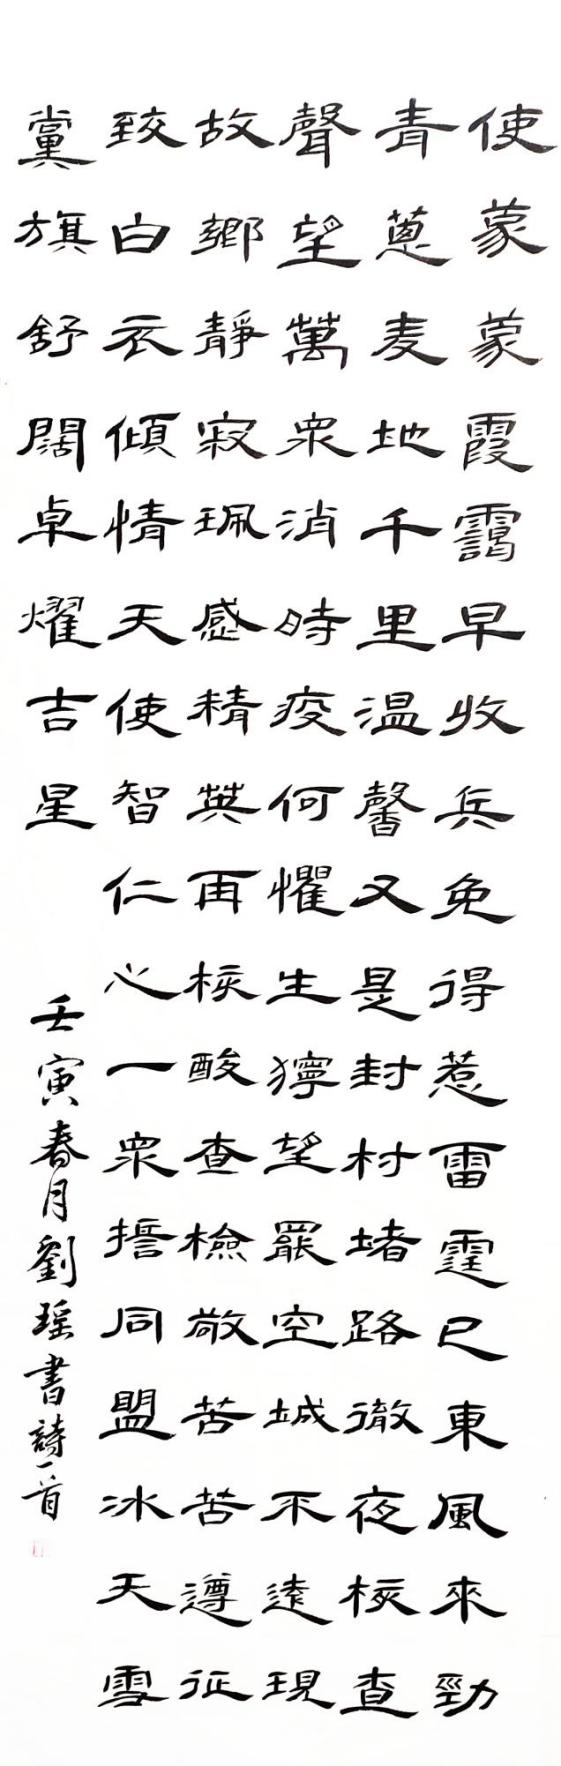 使蒙蒙霞靄早收兵免得惹雷霆已東風來勁
青蔥麦地千里温馨又是封村堵路徹夜核查
聲望萬衆消時疫何懼生獰望罷空城不遠現
故鄉靜寂珮感精英再核酸查檢敬苦苦遵征
致白衣傾情天使智仁心一衆擔同盟冰天雪
黨旗舒闊卓燿吉星
壬寅春月劉瑶書詩一首